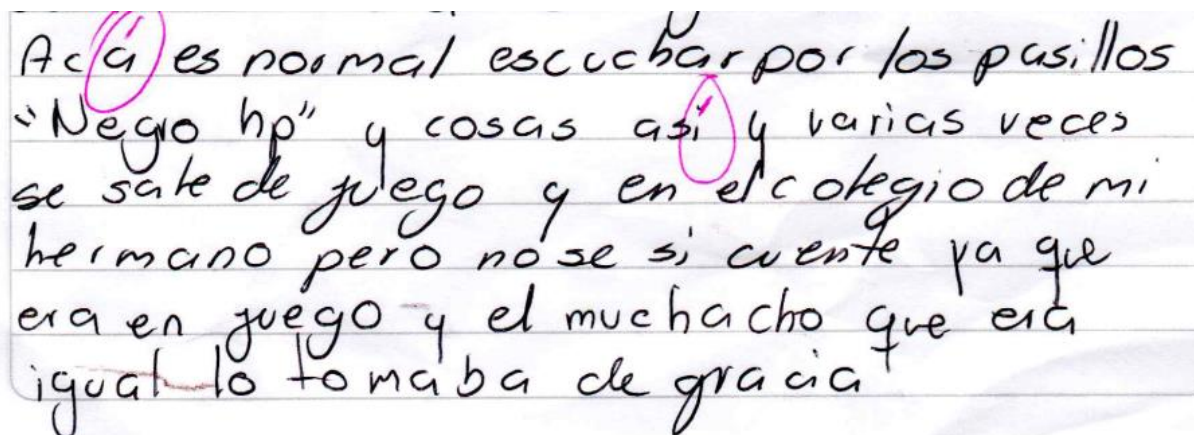 Acá es normal escuchar por los pasillos
"Negro hp" y cosas así y varias veces
se sale de juego y en el colegio de mi
hermano pero nose si cuente ya que
era en juego y el muchacho que era
igual lo tomaba de gracia